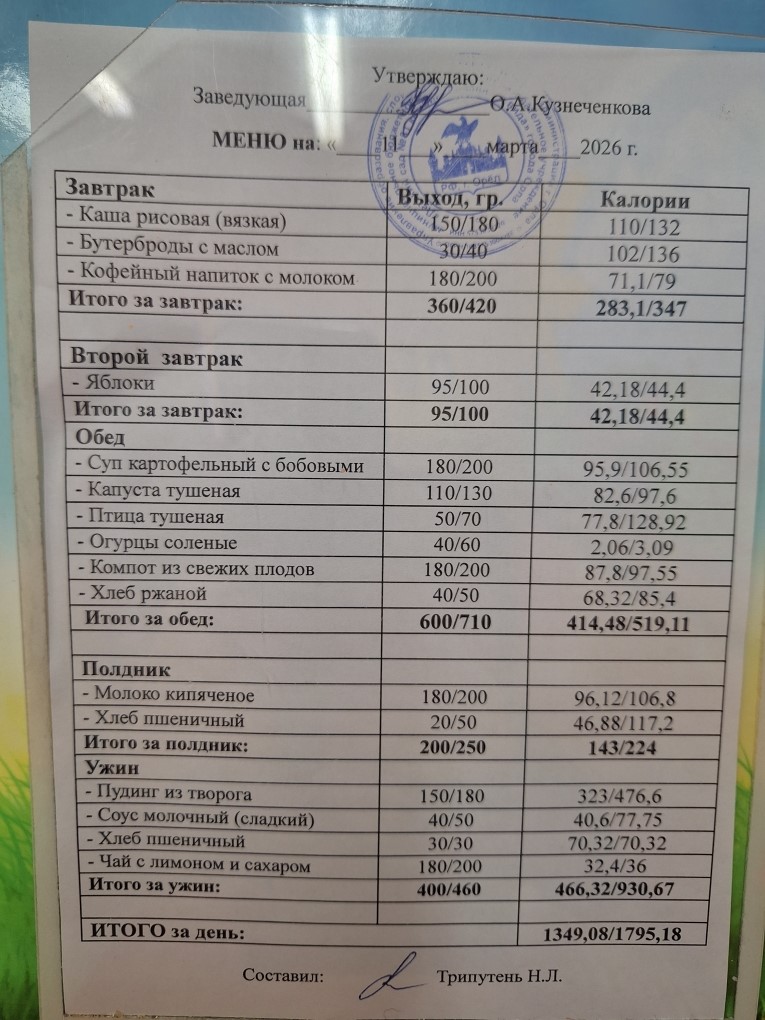 Утверждаю:
Заведующая О.А.Кузнеченкова
МЕНЮ на: « 11 » марта 2026 г.
Завтрак Выход, гр. Калории
- Каша рисовая (вязкая) 150/180 110/132
- Бутерброды с маслом 30/40 102/136
- Кофейный напиток с молоком 180/200 71,1/79
Итого за завтрак: 360/420 283,1/347
Второй завтрак
- Яблоки 95/100 42,18/44,4
Итого за завтрак: 95/100 42,18/44,4
Обед
- Суп картофельный с бобовыми 180/200 95,9/106,55
- Капуста тушеная 110/130 82,6/97,6
- Птица тушеная 50/70 77,8/128,92
- Огурцы соленые 40/60 2,06/3,09
- Компот из свежих плодов 180/200 87,8/97,55
- Хлеб ржаной 40/50 68,32/85,4
Итого за обед: 600/710 414,48/519,11
Полдник
- Молоко кипяченое 180/200 96,12/106,8
- Хлеб пшеничный 20/50 46,88/117,2
Итого за полдник: 200/250 143/224
Ужин
- Пудинг из творога 150/180 323/476,6
- Соус молочный (сладкий) 40/50 40,6/77,75
- Хлеб пшеничный 30/30 70,32/70,32
- Чай с лимоном и сахаром 180/200 32,4/36
Итого за ужин: 400/460 466,32/930,67
ИТОГО за день: 1349,08/1795,18
Составил: Трипутень Н.Л.
РФ, г. Орёл